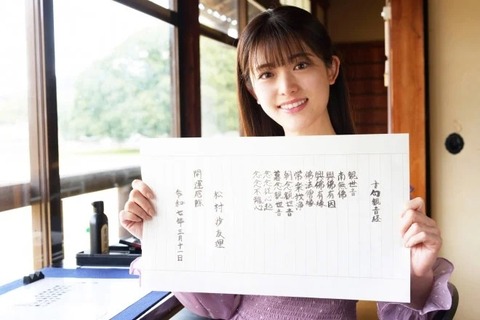 十句観音経
観世音
南無佛
與佛有因
與佛有縁
佛法僧縁
常楽我浄
朝念観世音
暮念観世音
念念従心起
念念不離心
開運厄除
松村沙友理
令和七年三月十一日